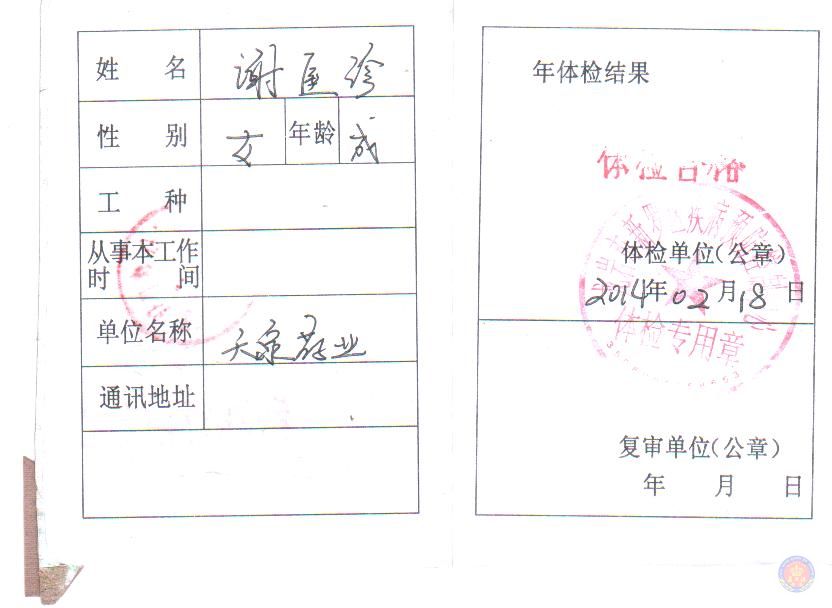 姓 名 谢医珍
性 别 女 年龄 成
工 种
从事本工作
时 间
单位名称 天泉药业
通讯地址
年体检结果
体检合格
体检单位(公章)
2014年02月18日
体检专用章
复审单位(公章)
年 月 日